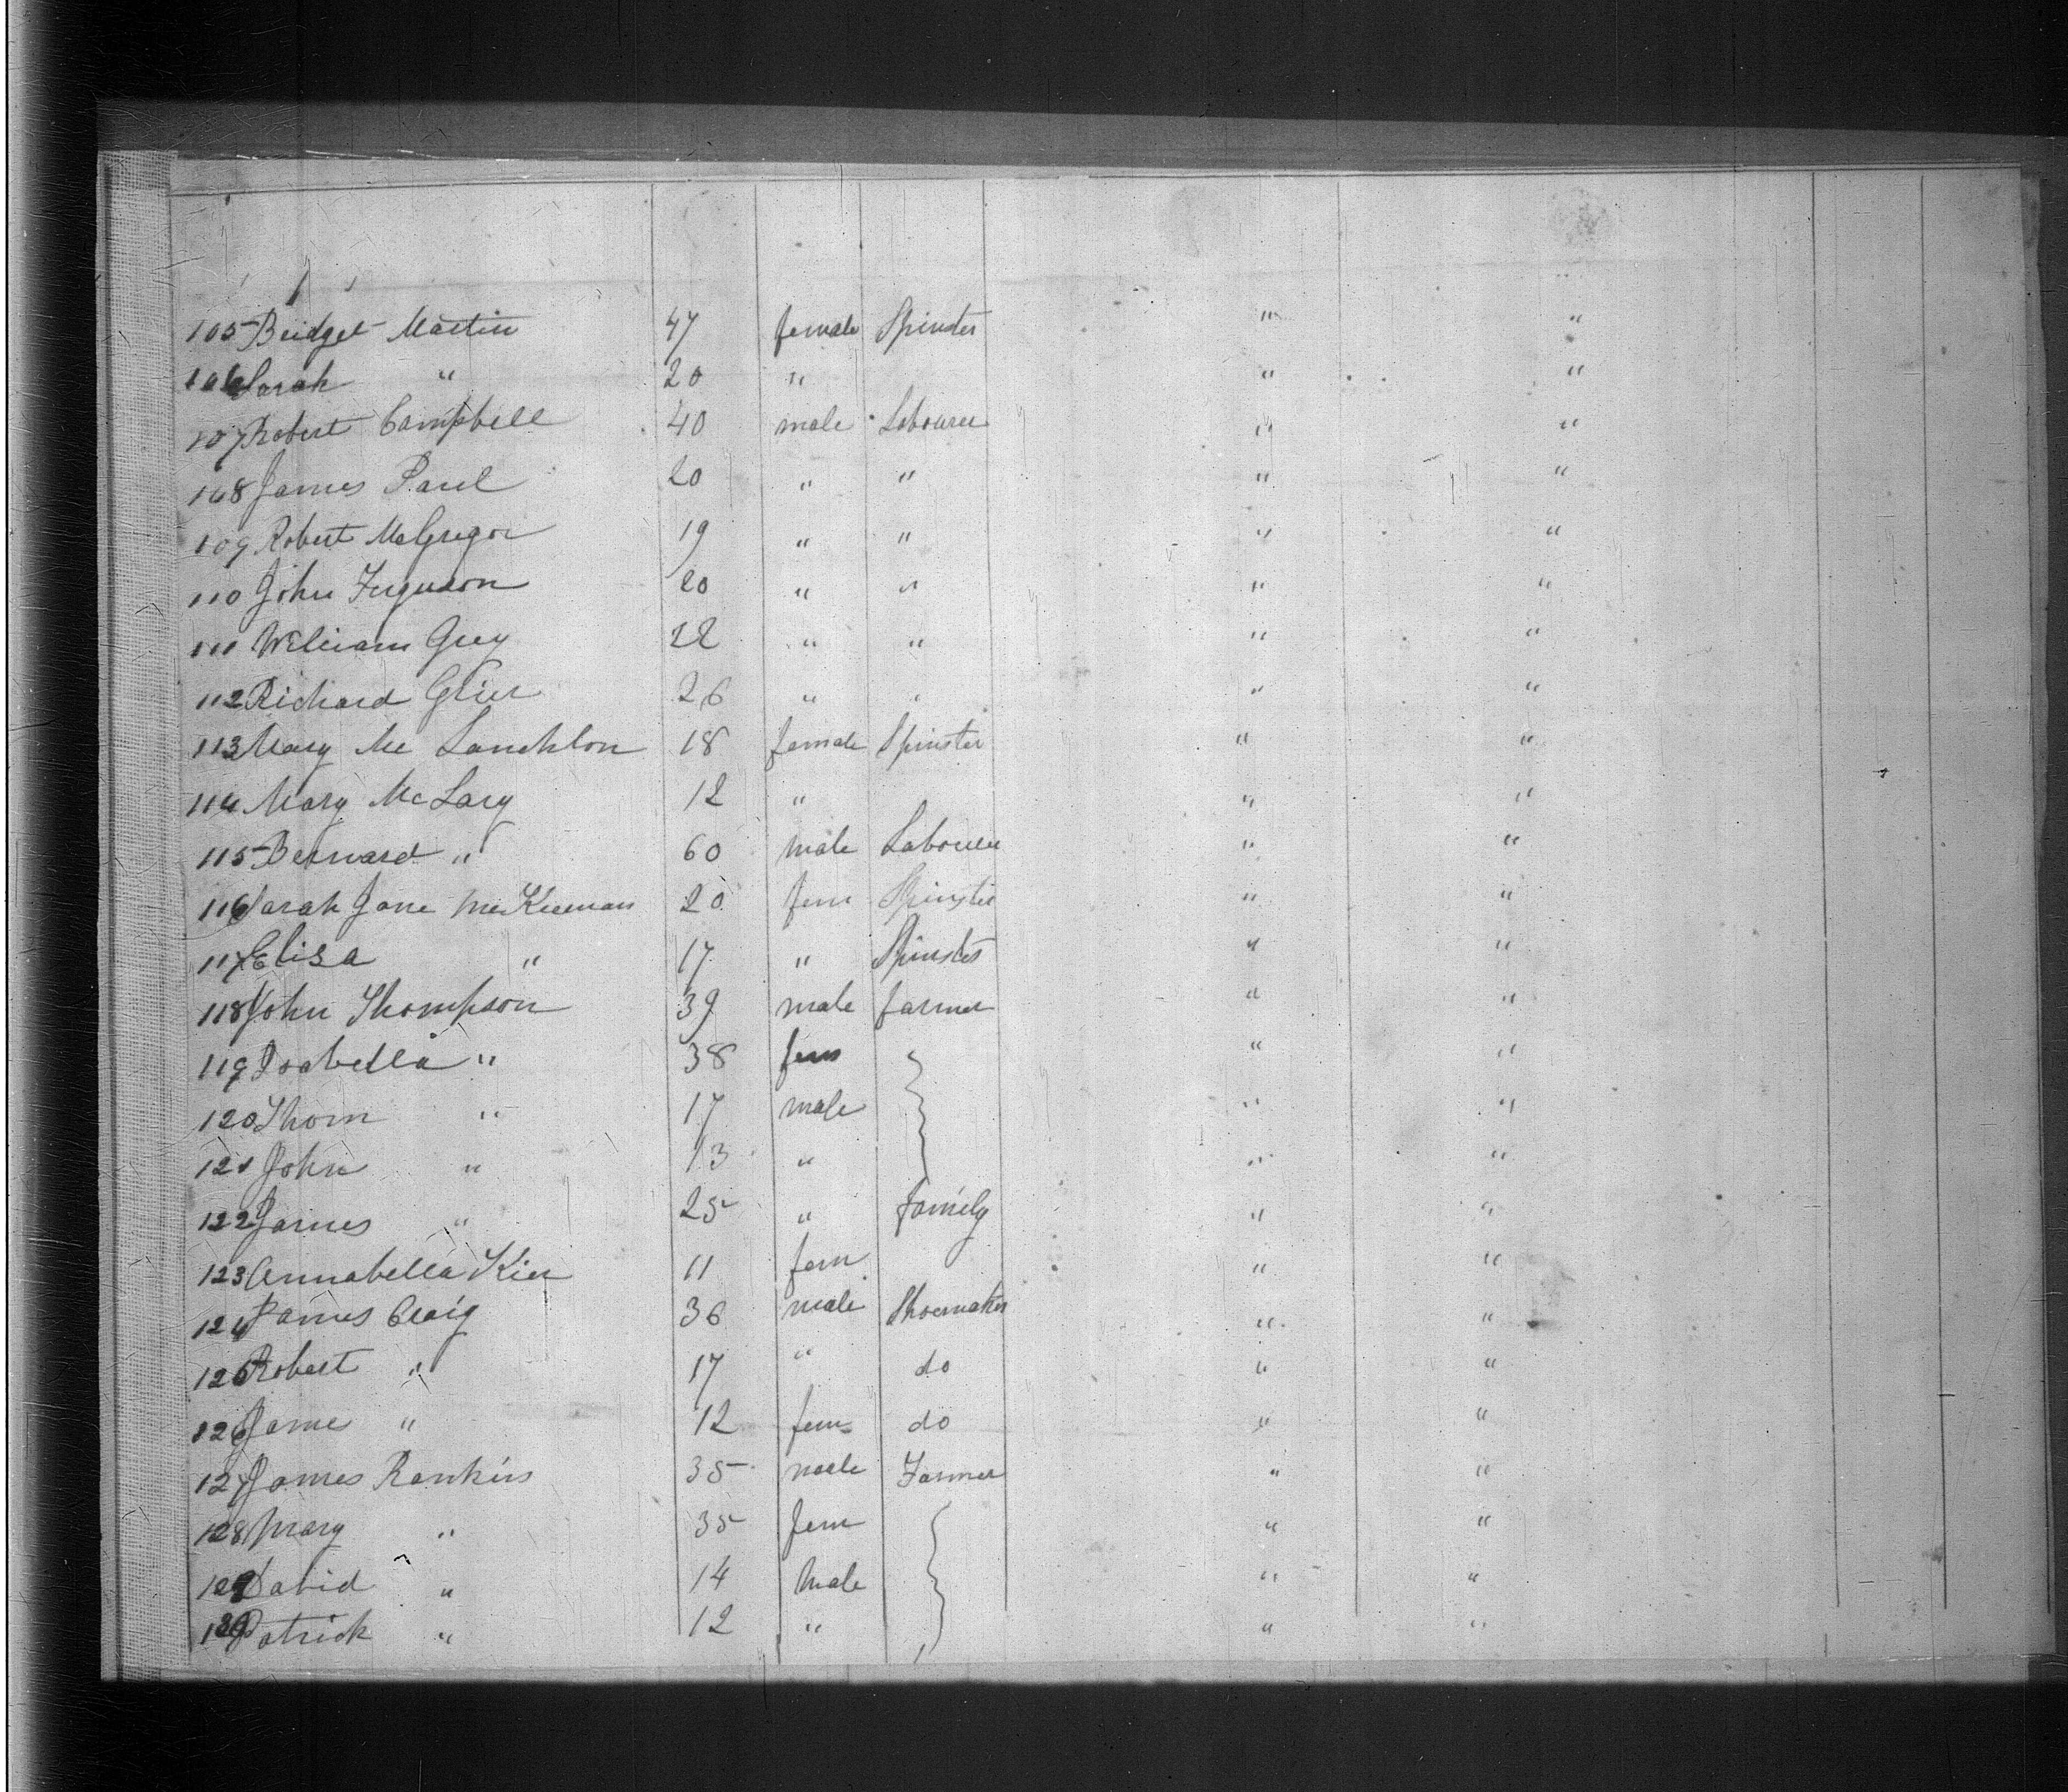 105 Bridget Martin 47 female Spinster " "
106 Sarah " 20 " " "
107 Robert Campbell 40 male Labourer " "
108 James Paul 20 " " " "
109 Robert McGregor 19 " " " "
110 John Ferguson 20 " " " "
111 William Grey 22 " " " "
112 Richard Grier 26 " " " "
113 Mary Mc Lanchlon 18 female Spinster " "
114 Mary McLary 12 " " "
115 Bernard " 60 male Labourer " "
116 Sarah Jane McKeeman 20 fem Spinster " "
117 Elisa " 17 " Spinster " "
118 John Thompson 39 male farmer " "
119 Isabella " 38 fem " "
120 Thom " 17 male " "
121 John " 13 " " "
122 James " 25 " family " "
123 Annabella Kier 11 fem " "
124 James Craig 36 male Shoemaker " "
125 Robert " 17 " do " "
126 Jame " 12 fem do " "
127 James Rankin 35 male Farmer " "
128 Mary " 35 fem " "
129 David " 14 Male " "
130 Patrick " 12 " " "